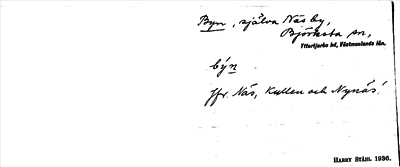 Byn, själva Näsby,
Björksta sn,
Yttertjurbo hd, Västmanlands län.
by̆n
Jfr. Näs, Kullen och Nynäs!
HARRY STÅHL 1936.